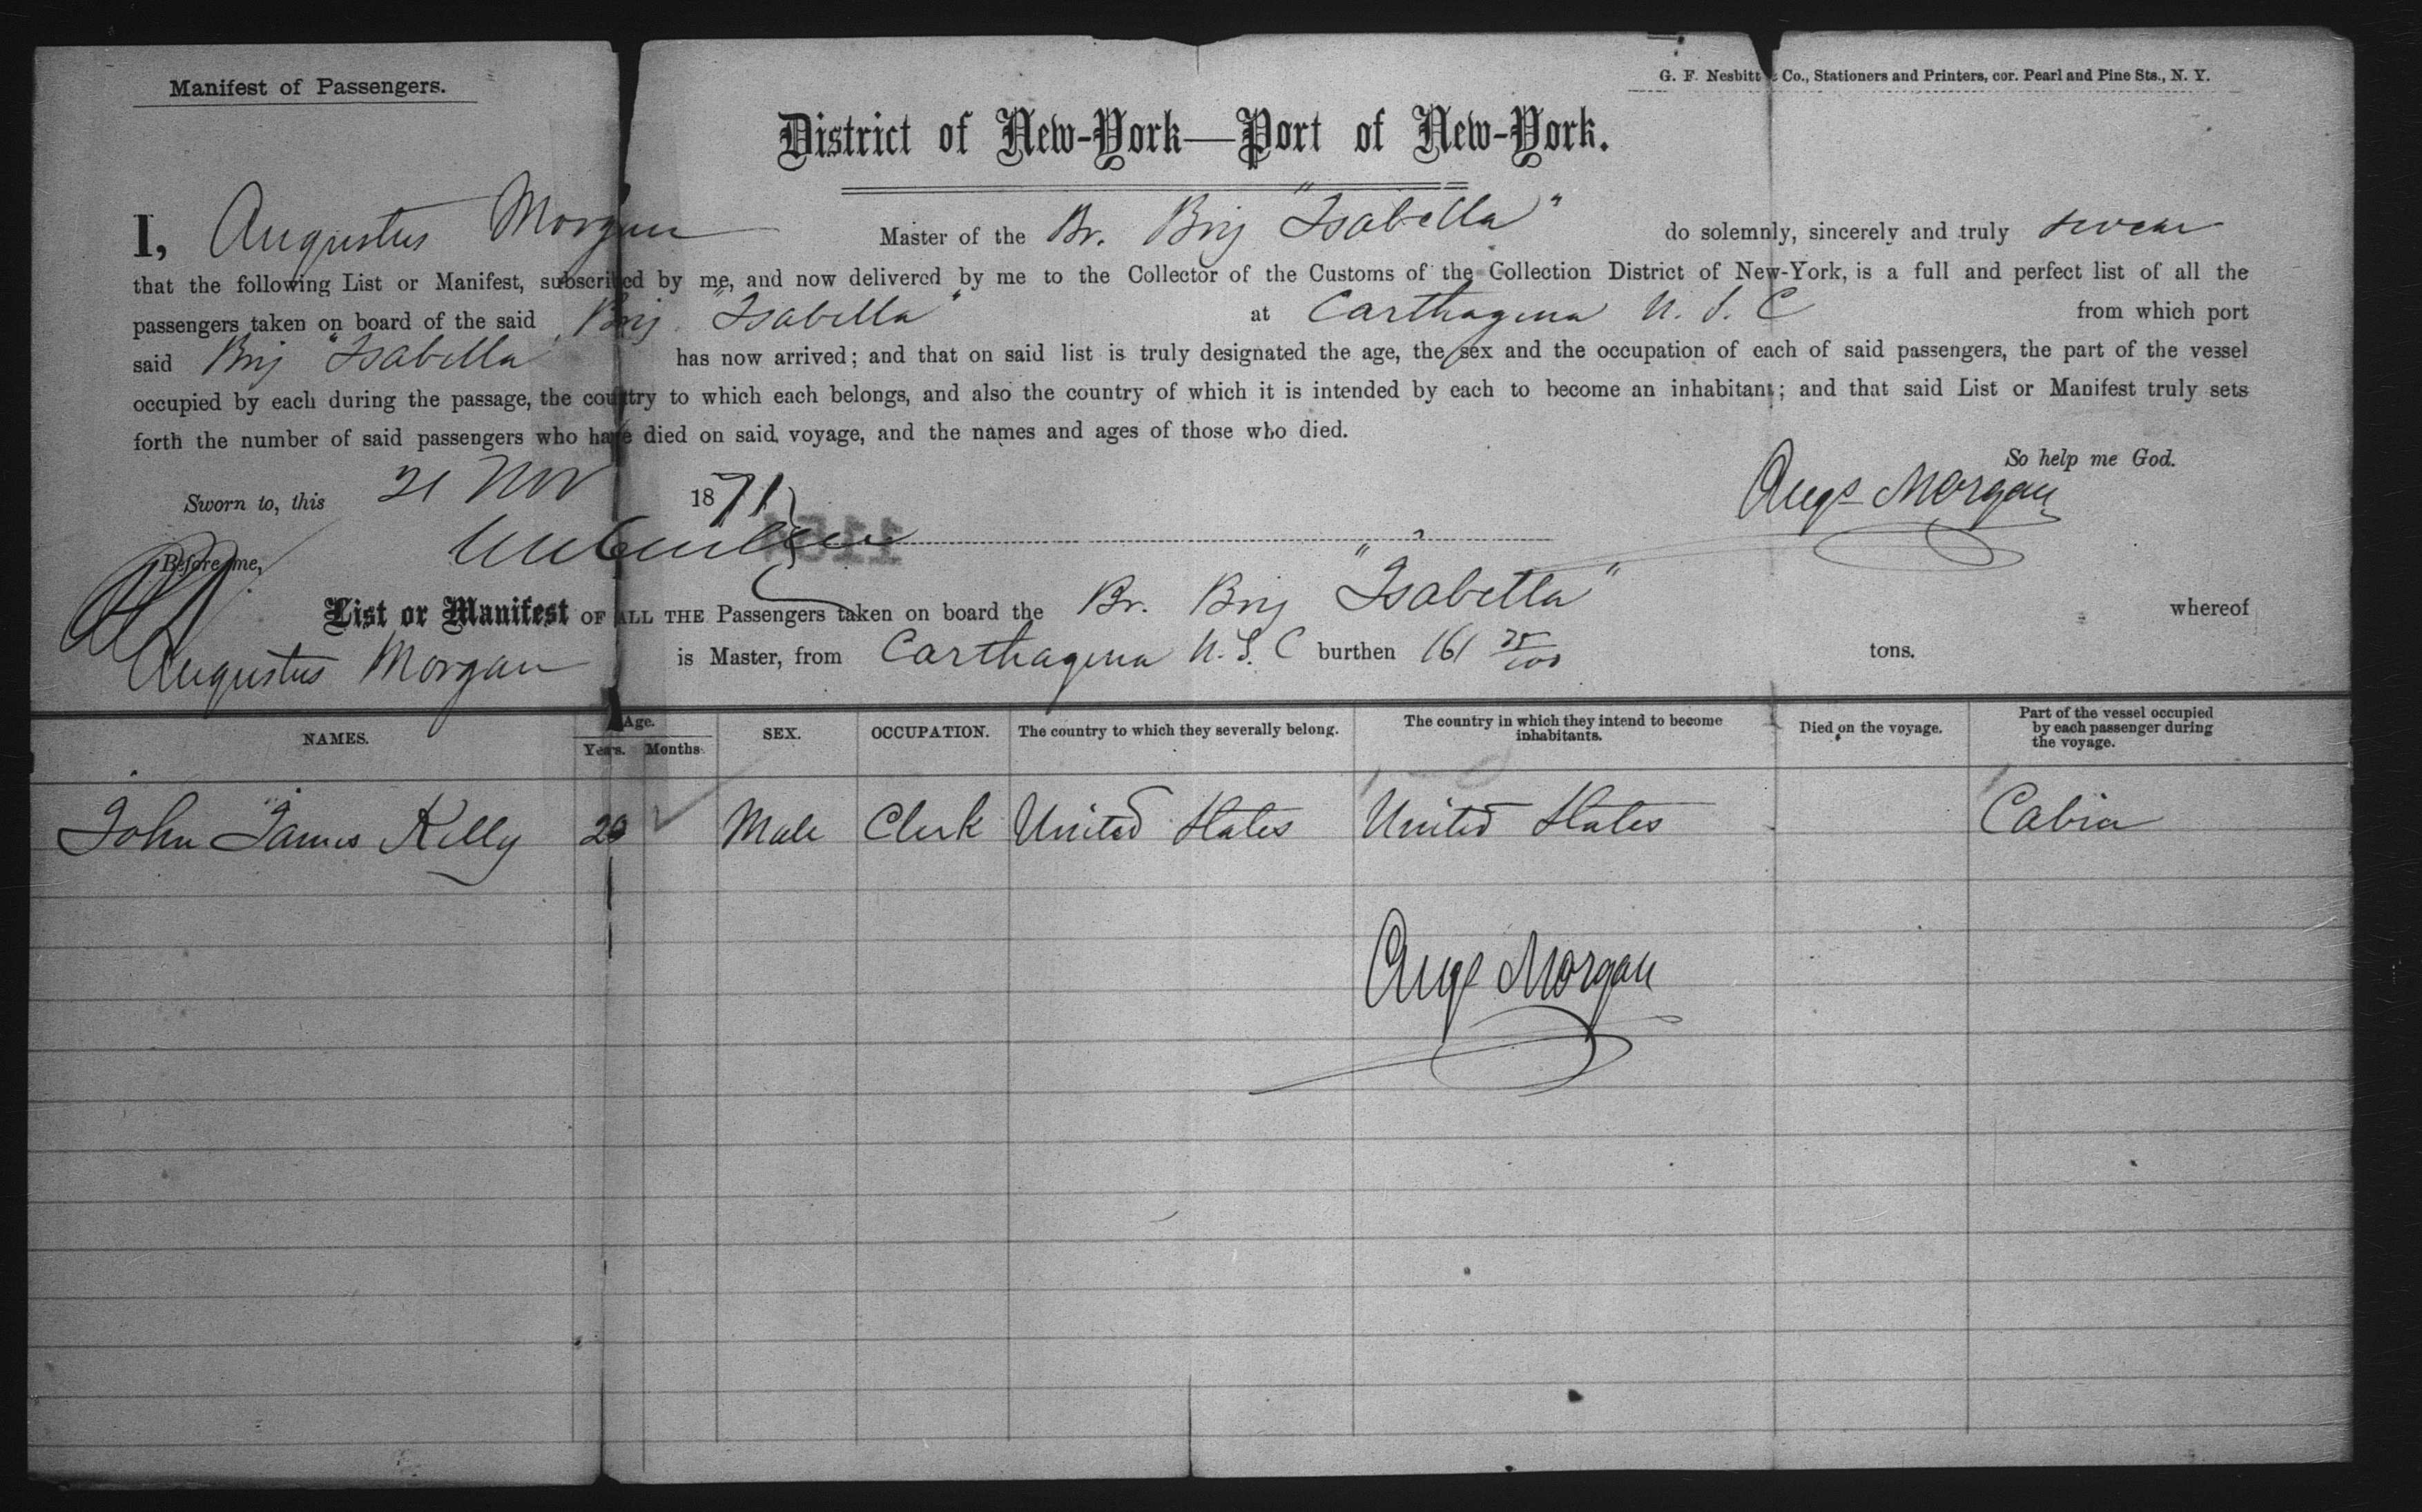 Manifest of Passengers.
G. F. Nesbitt & Co., Stationers and Printers, cor. Pearl and Pine Sts., N. Y.
District of New-York—Port of New-York.
I, Augustus Morgan Master of the Br. Brig "Isabella" do solemnly, sincerely and truly swear
that the following List or Manifest, subscribed by me, and now delivered by me to the Collector of the Customs of the Collection District of New-York, is a full and perfect list of all the
passengers taken on board of the said Brig "Isabella" at Carthagena U. S. C from which port
said Brig "Isabella" has now arrived; and that on said list is truly designated the age, the sex and the occupation of each of said passengers, the part of the vessel
occupied by each during the passage, the country to which each belongs, and also the country of which it is intended by each to become an inhabitant; and that said List or Manifest truly sets
forth the number of said passengers who have died on said voyage, and the names and ages of those who died.
So help me God.
Sworn to, this 21 Nov 1871 Augs Morgan
Before me,
List or Manifest OF ALL THE Passengers taken on board the Br. Brig "Isabella" whereof
Augustus Morgan is Master, from Carthagena U. S. C burthen 161 75/100 tons.
NAMES. Age. Years. Months. SEX. OCCUPATION. The country to which they severally belong. The country in which they intend to become inhabitants. Died on the voyage. Part of the vessel occupied by each passenger during the voyage.
John James Kelly Male Clerk United States United States Cabin
Augs Morgan